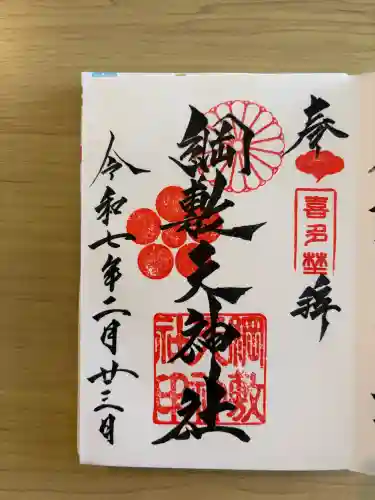 奉拝
喜多埜
綱敷天神社
綱敷天神社印
令和七年二月廿三日